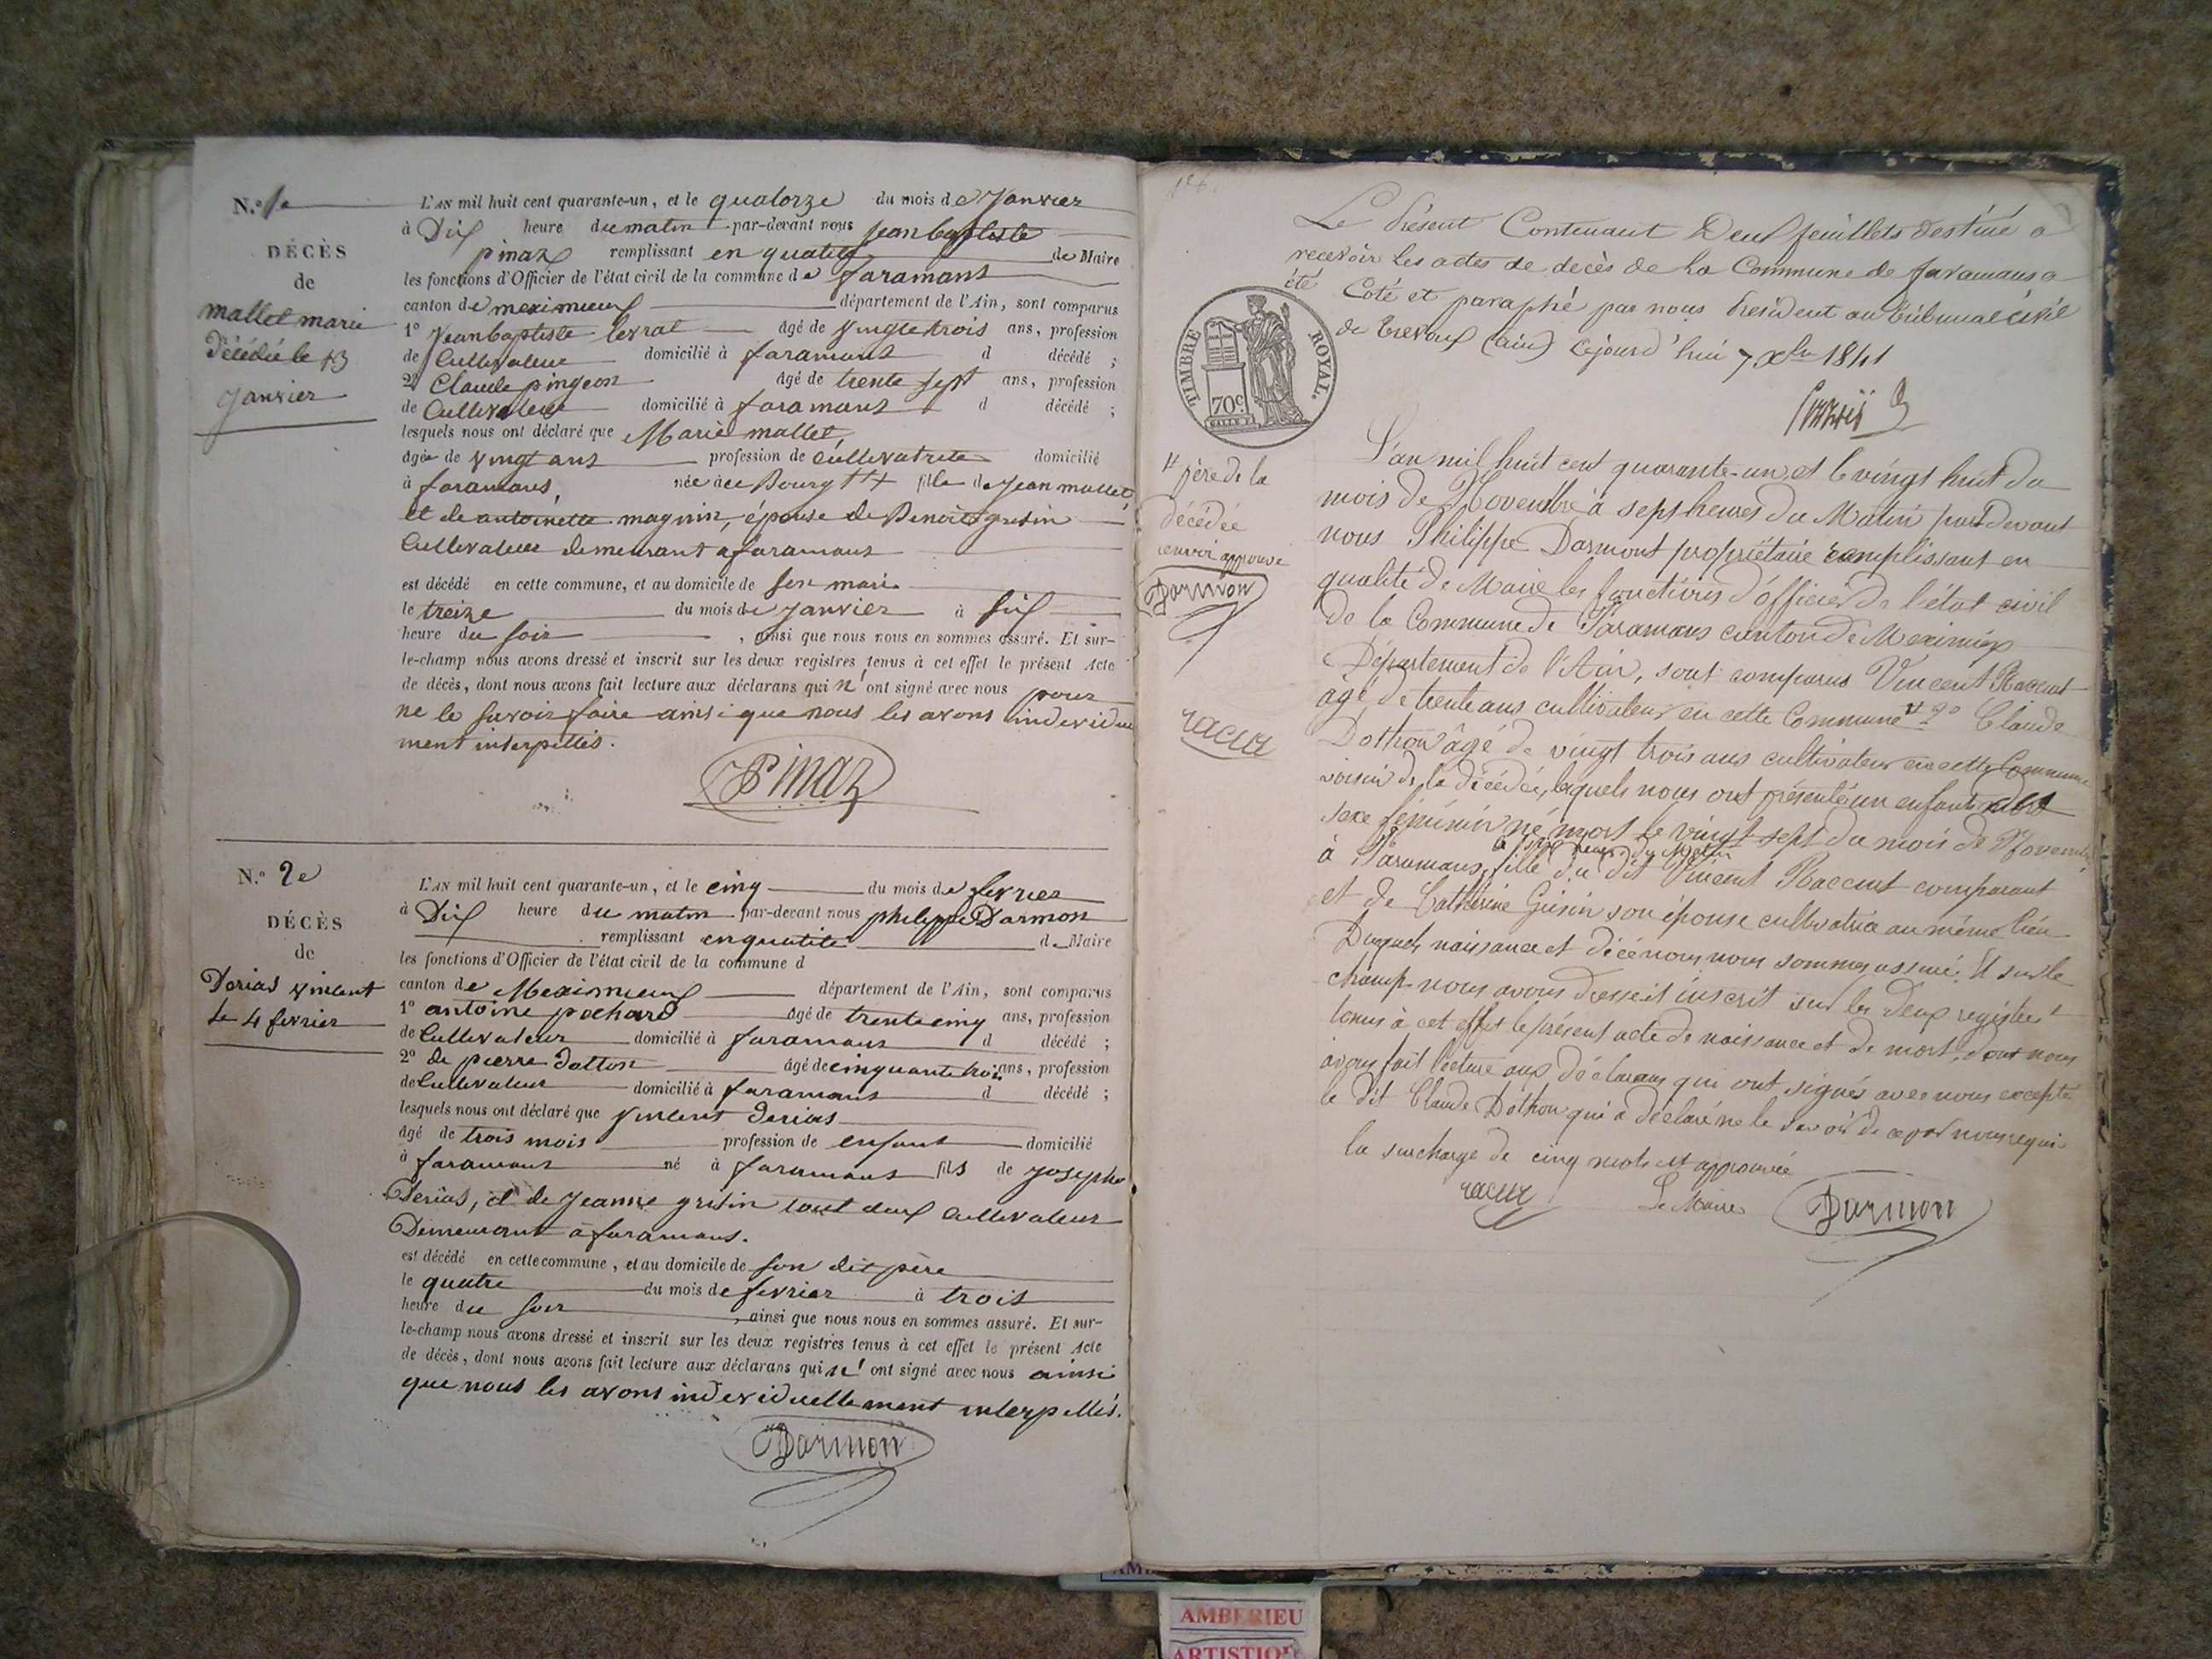 N.º 1e
DÉCÈS
de
mallet marie
décédée le 13
janvier
L'AN mil huit cent quarante-un, et le quatorze du mois de Janvier
à Dix heure du matin par-devant nous jean baptiste
pinaz remplissant en qualité de Maire
les fonctions d'Officier de l'état civil de la commune de faramans
canton de meximieux département de l'Ain, sont comparus
1º Jean baptiste levrat âgé de vingt trois ans, profession
de Cultivateur domicilié à faramans d décédé ;
2º Claude pingeon âgé de trente sept ans, profession
de Cultivateur domicilié à faramans d décédé ;
lesquels nous ont déclaré que Marie mallet,
âgée de vingt ans profession de cultivatrice domicilié
à faramans, née à Bourg fille de jean mallet
et de antoinette magnin, épouse de Benoit grisin
Cultivateur demeurant a faramans
est décédé en cette commune, et au domicile de son mari
le treize du mois de janvier à six
heure du soir , ainsi que nous nous en sommes assuré. Et sur-
le-champ nous avons dressé et inscrit sur les deux registres tenus à cet effet le présent Acte
de décès, dont nous avons fait lecture aux déclarans qui n'ont signé avec nous pour
ne le savoir faire ainsi que nous les avons individu
ment interpellés.
Pinaz
N.º 2e
DÉCÈS
de
Derias vincent
le 4 fevrier
L'AN mil huit cent quarante-un, et le cinq du mois de fevrier
à Dix heure du matin par-devant nous philippe Darmon
remplissant en qualité de Maire
les fonctions d'Officier de l'état civil de la commune d
canton de Meximieux département de l'Ain, sont comparus
1º antoine pochard âgé de trente cinq ans, profession
de Cultivateur domicilié à faramans d décédé ;
2º de pierre dotton âgé de cinquante trois ans, profession
de Cultivateur domicilié à faramans d décédé ;
lesquels nous ont déclaré que vincent derias
âgé de trois mois profession de enfant domicilié
à faramans né à faramans fils de joseph
Derias, et de jeanne grisin tout deux cultivateur
Demeurant à faramans.
est décédé en cette commune, et au domicile de son dit père
le quatre du mois de fevrier à trois
heure du soir , ainsi que nous nous en sommes assuré. Et sur-
le-champ nous avons dressé et inscrit sur les deux registres tenus à cet effet le présent Acte
de décès, dont nous avons fait lecture aux déclarans qui n'ont signé avec nous ainsi
que nous les avons individuellement interpellés.
Darmon
Le Présent Contenant Deux feuillets destiné a
recevoir les actes de décès de la Commune de faramans a
été Coté et paraphé par nous Président au tribunal civil
de Trevoux (ain) Cejourd'hui 7 xbre 1841
TIMBRE ROYAL
70c.
père de la
décédée
renvoi approuvé
Darmon
racur
L'an mil huit cent quarante-un, et le vingt huit du
mois de Novembre à sept heures du Matin par Devant
nous Philippe Darmont propriétaire remplissant en
qualité de Maire les fonctions d'officier de l'état civil
de la Commune de Faramans canton de Meximieux
Département de l'Ain, sont comparus Vincent Raccut
âgé de trente ans cultivateur en cette Commune 2º Claude
Dothon âgé de vingt trois ans cultivateur en cette Commune
voisin de la décédée, lesquels nous ont présenté un enfant
sexe féminin né mort le vingt sept du mois de Novembre
à sept heures du Matin
à Faramans, fille du dit Vincent Raccut comparant
et de Catherine Grisin son épouse cultivatrice au même lieu
Duquels naissance et décé nous nous sommes assuré. Et sur le
champ nous avons dressé et inscrit sur les deux registres
tenus à cet effet le présent acte de naissance et de mort, dont nous
avons fait lecture aux déclarans qui ont signés avec nous excepté
le dit Claude Dothon qui a déclaré ne le savoir de ce par nous requis
la surcharge de cinq mots est approuvée
racur Le Maire Darmon
AMBERIEU
ARTISTIQ